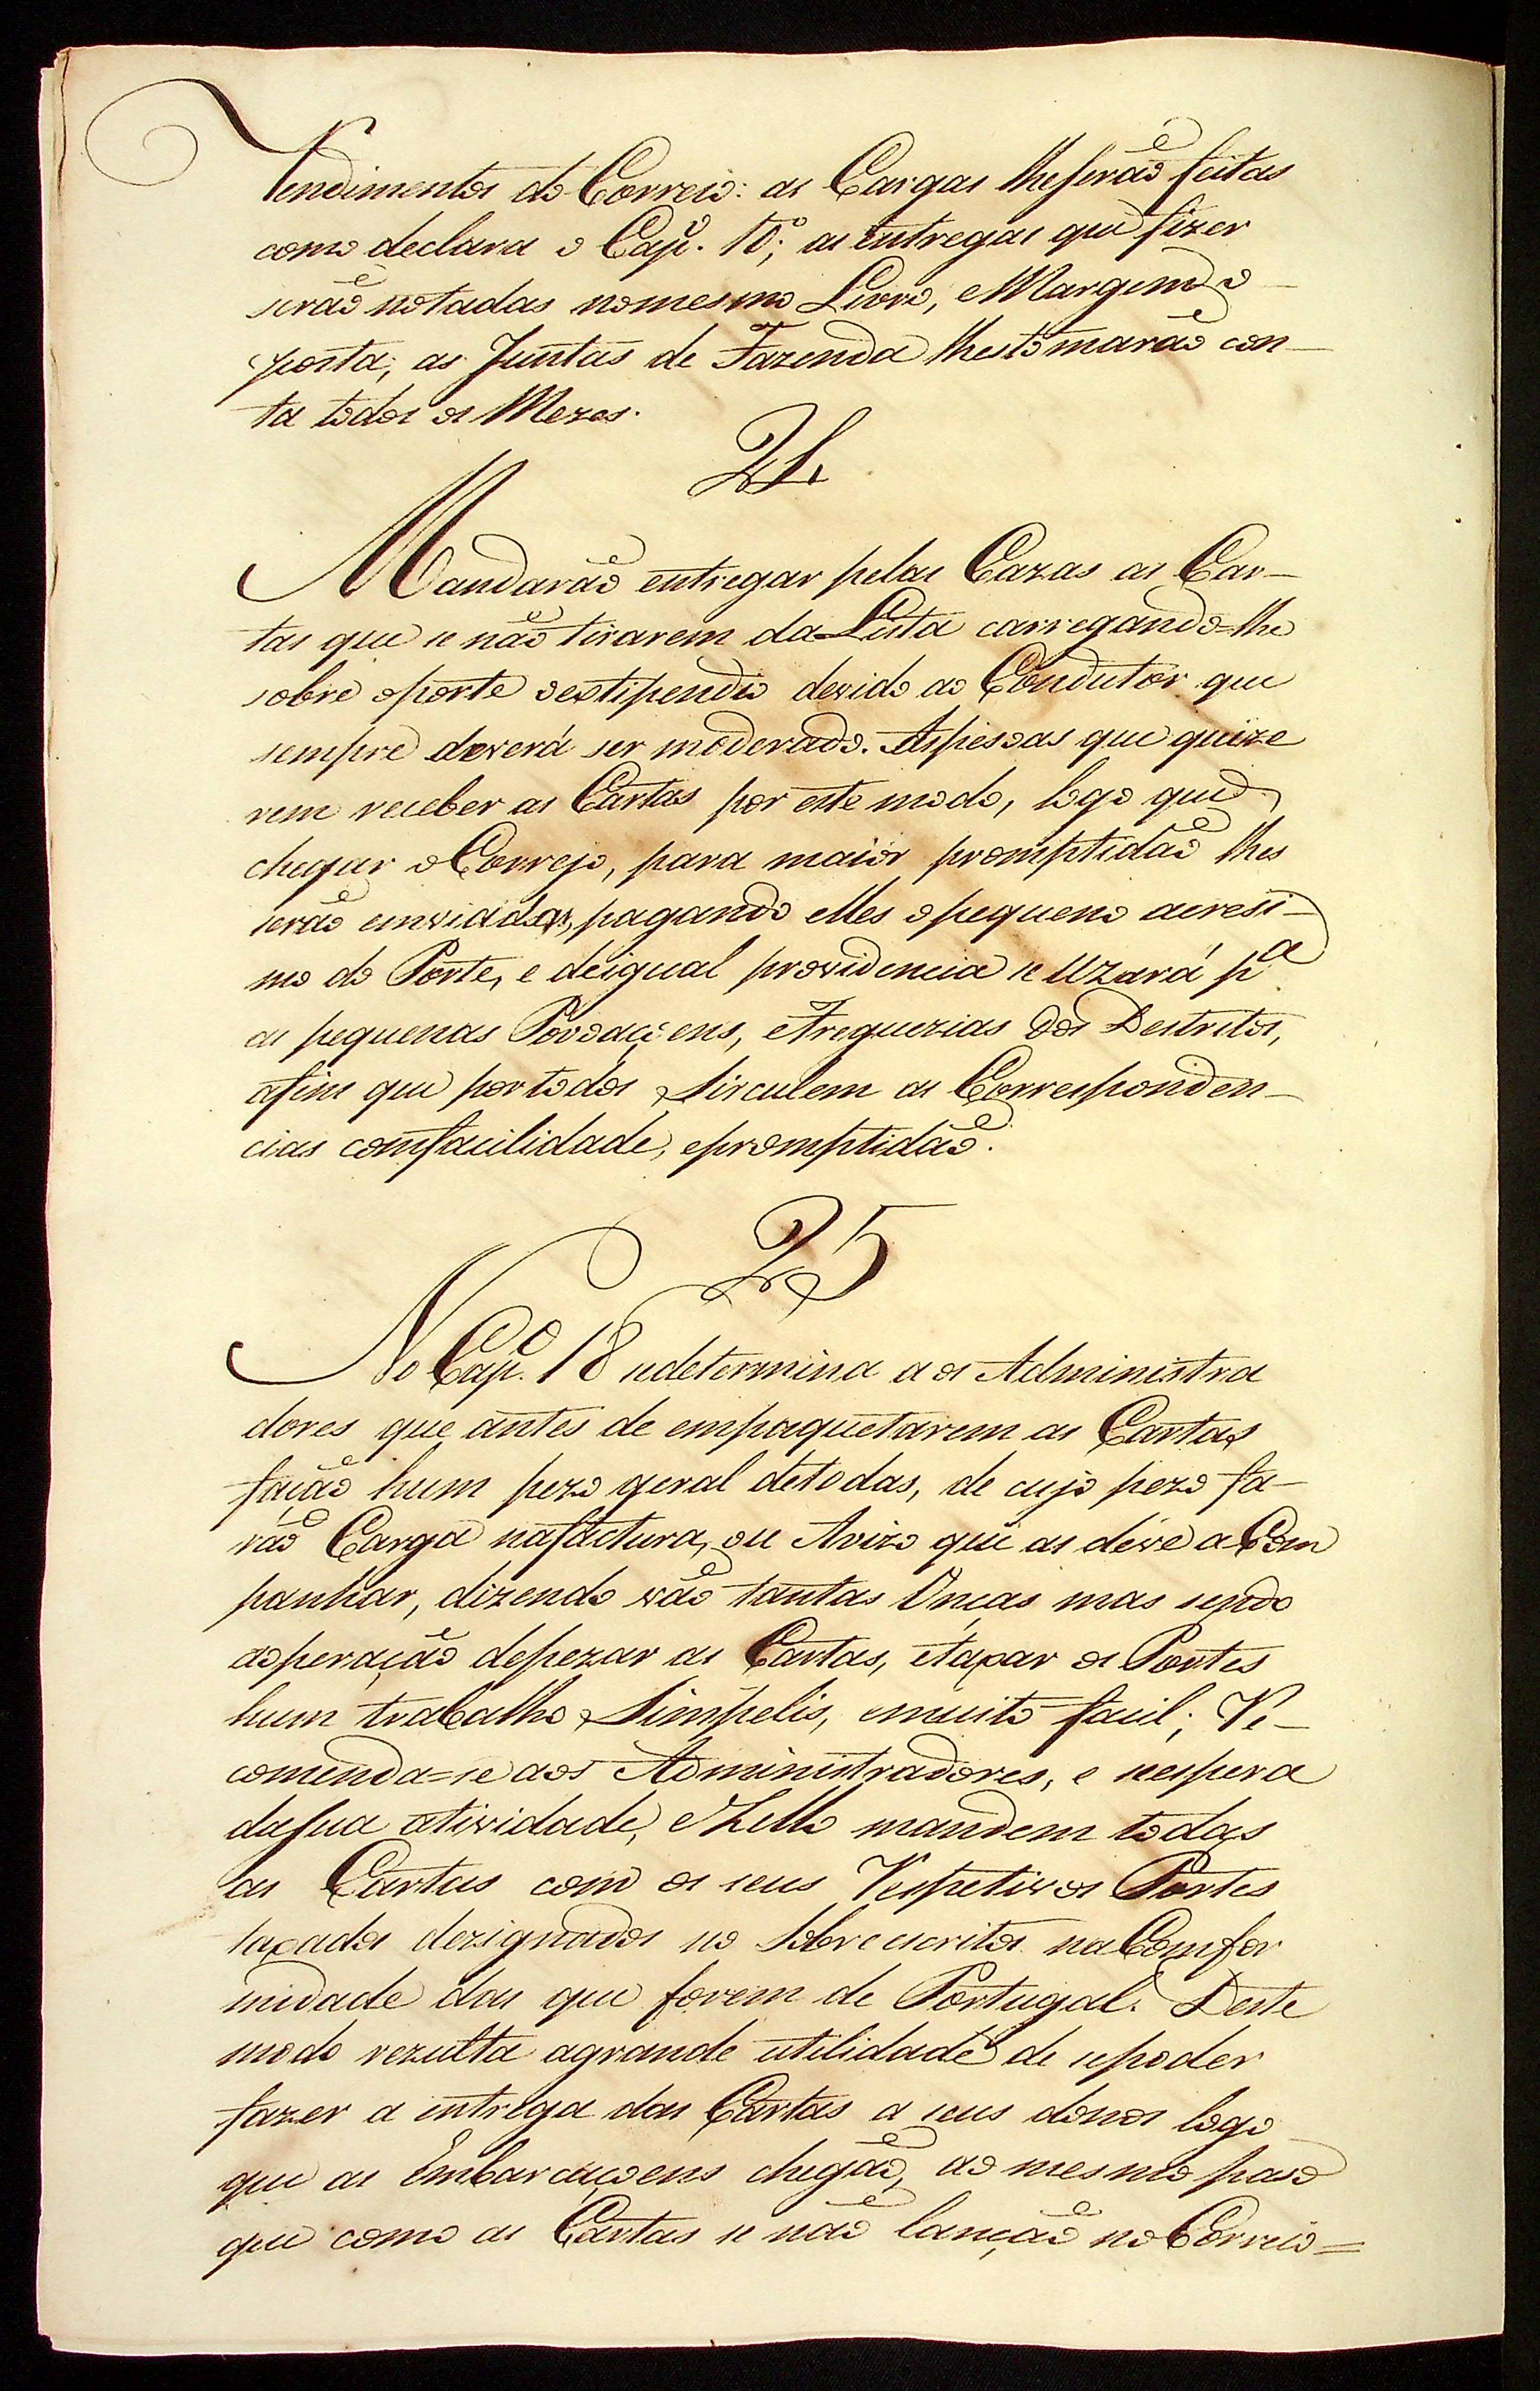 Rendimentos do Correio: as Cargas lhe serão feitas
como declara o Cap.º 10.º; as entregas que fizer
serão notadas no mesmo Livro, e Margem o
posta; as Juntas de Fazenda lhes tomarão con-
ta todos os Mezes.
24
Mandarão entregar pelas Cazas as Car-
tas que se não tirarem da Lista carregando=lhe
sobre o porte o estipendio devido ao Condutor que
sempre deverá ser moderado. As pessoas que quize
rem receber as Cartas por este modo, logo que
chegar o Correjo, para maior promptidão lhes
serão enviadas, pagando elles o pequeno acresi-
mo do Porte, e de igual providencia se Uzará p.ª
as pequenas Povoaçoens, e Freguezias dos Destritos,
afim que por todos Sirculem as Corresponden-
cias com facilidade, e promptidão.
25
No Cap.º 18 se determina a os Administra
dores que antes de empaquetarem as Cartas
fação hum pezo geral de todas, de cujo pezo fa-
rão Carga na factura, ou Avizo que as deve a Com
panhar, dizendo vão tantas Onças mas sendo
a operação de pezar as Cartas, e taxar os Portes
hum trabalho Simpelis, e muito facil; Re-
comenda=se aos Administradores, e se espera
da sua atividade, e Zello mandem todas
as Cartas com os seus Respetivos Portes
taxados dezignados no Sobre escritos na Comfor
midade das que forem de Portugal. Deste
modo rezulta a grande utilidade de se poder
fazer a entrega das Cartas a seus donos logo
que as Embarcaçoens chegão, ao mesmo paso
que como as Cartas se não lanção no Correio=